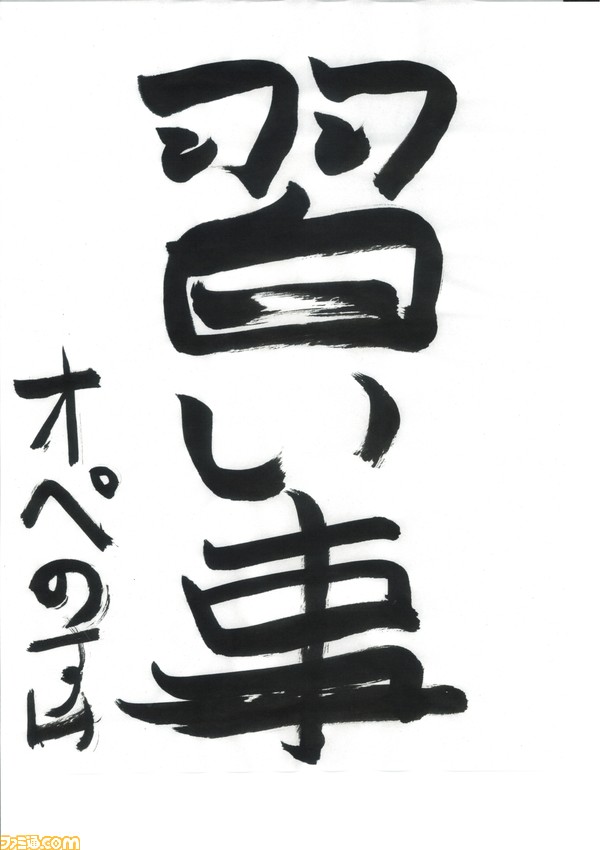 習い事
オペの
ファミ通.com